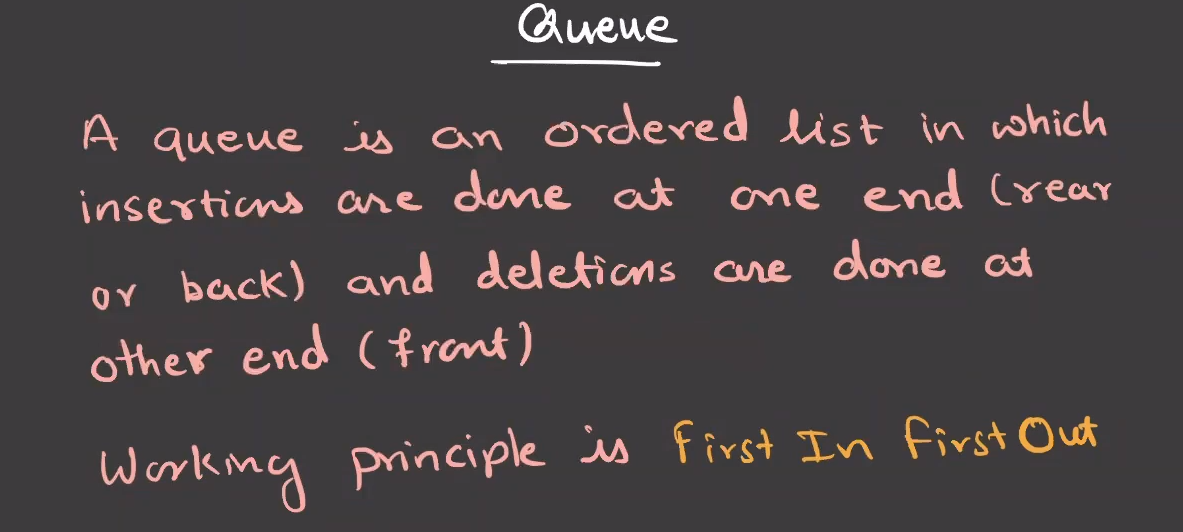 Queue
A queue is an ordered list in which
insertions are done at one end (rear
or back) and deletions are done at
other end (front)
Working principle is First In First Out